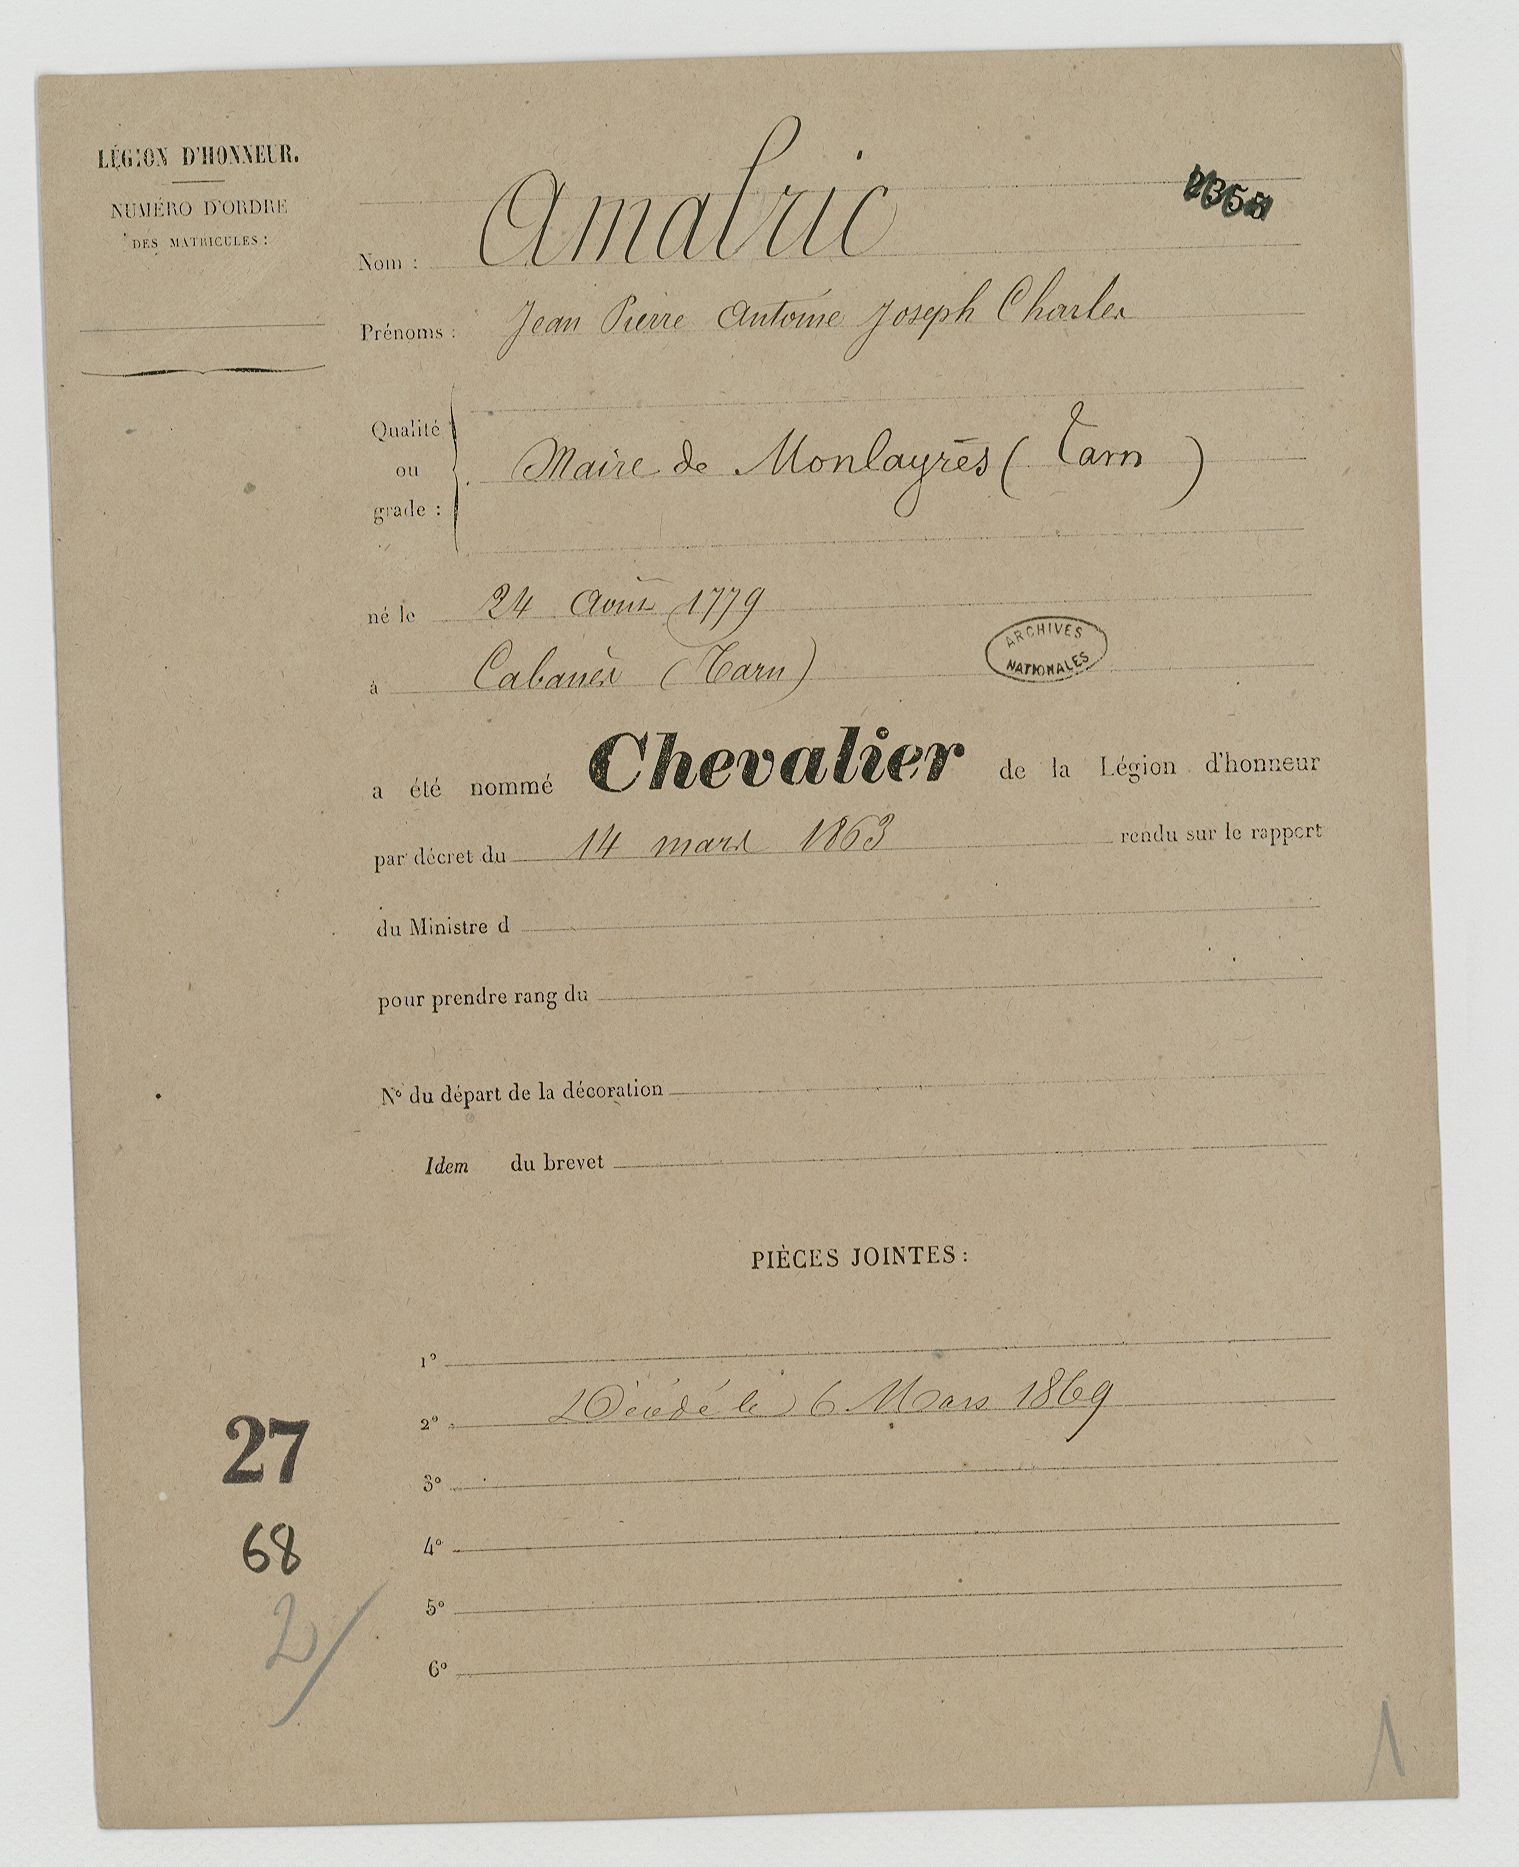 LÉGION D'HONNEUR.
NUMÉRO D'ORDRE
DES MATRICULES :
Nom : Amalric
Prénoms : Jean Pierre Antoine Joseph Charles
Qualité
ou
grade :
Maire de Monlayrès ( Tarn )
né le 24 Août 1779
à Cabanès (Tarn)
ARCHIVES
NATIONALES
a été nommé Chevalier de la Légion d'honneur
par décret du 14 mars 1863 rendu sur le rapport
du Ministre d
pour prendre rang du
N° du départ de la décoration
Idem du brevet
PIÈCES JOINTES :
1°
2° Décédé le 6 Mars 1869
3°
4°
5°
6°
27
68
2/
1